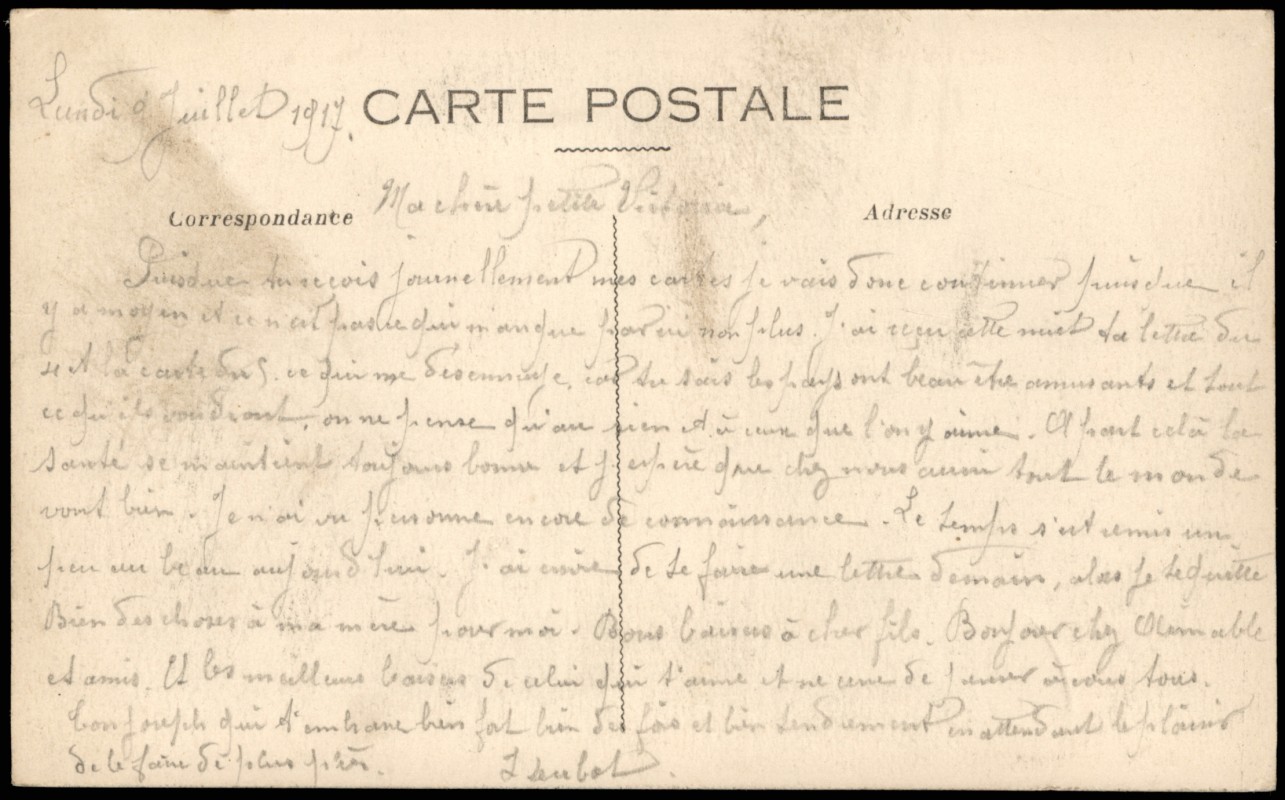 Lundi 9 Juillet 1917. CARTE POSTALE
Correspondance Ma chère petite Victoria, Adresse
Puisque tu reçois journellement mes cartes je vais donc continuer puisque il
y a moyen et ce n'est pas ce qui manque par ici non plus. J'ai reçu cette nuit ta lettre du
4 et la carte du 5. ce qui me désennuye, car tu sais les pays ont beau être amusants et tout
ce qu'ils voudront, on ne pense qu'au sien et à ceux que l'on y aime. A part celà la
santé se maintient toujours bonne et j'espère que chez nous aussi tout le monde
vont bien. Je n'ai vu personne encore de connaissance. Le temps s'est remis un
peu au beau aujourd'hui. J'ai envie de te faire une lettre demain, alors je te quitte
Bien des choses à ma mère pour moi. Bons baisers à cher fils. Bonjour chez
et amis. Et les meilleurs baisers de celui qui t'aime et ne cesse de penser à vous tous.
Ton Joseph qui t'embrasse bien fort bien des fois et bien tendrement en attendant le plaisir
de le faire de plus près. J